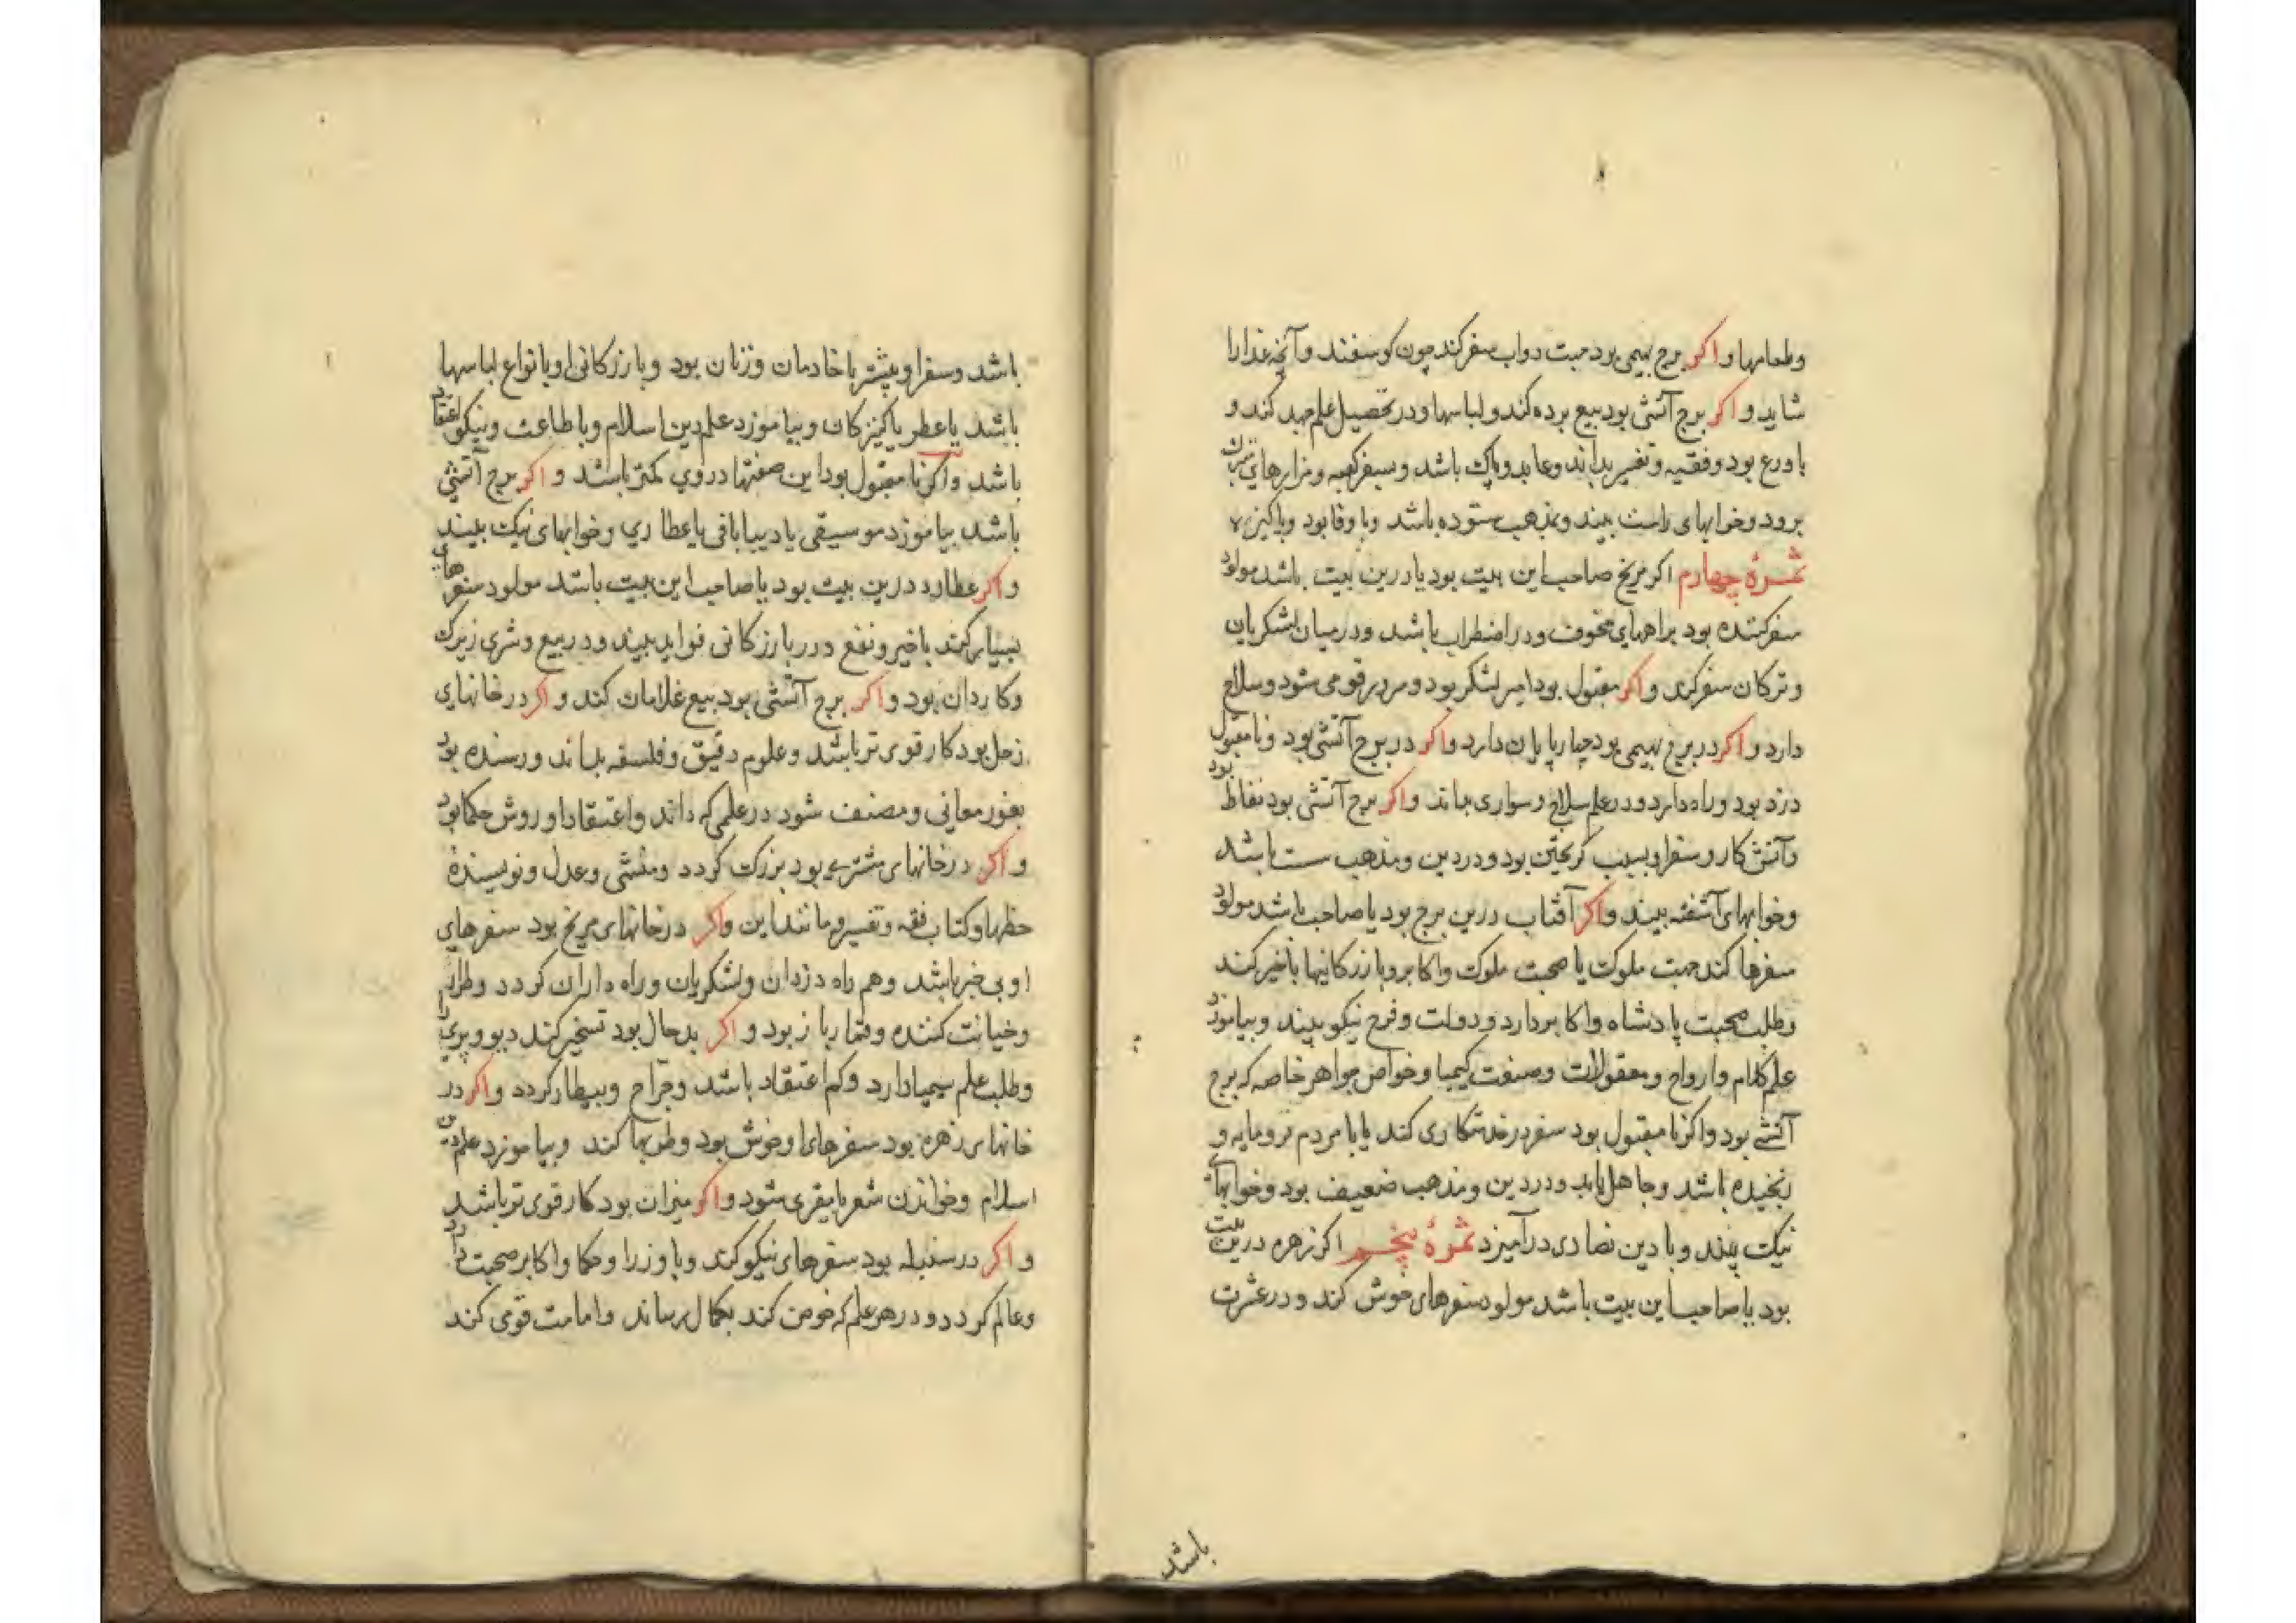 وطعامها و اكر برج بهیمی بود جهت دواب سفر کند چون کوسفند و آنچه غذا را
شاید و اكر برج آتشی بود بیع برده کند و لباسها و در تحصیل علم جهد کند و
با ورع بود و فقیه و تفسیر بداند و عابد و پاک باشد و بسفر کعبه و مزارهای متبرک
برود و خوابهای راست بیند و بمذهب ستوده باشد و با وفا بود و پاکیزه
ثمرهٔ چهارم اكر مریخ صاحب این بیت بود یا درین بیت باشد مولود
سفر کننده بود براههای مخوف و در اضطراب باشد و در میان لشکریان
و ترکان سفر کند و اكر مقبول بود امیر لشکر بود و مرد قوی شود و سلاح
دارد و اكر در برج بهیمی بود چهارپایان دارد و اكر در برج آتشی بود و نامقبول بود
دزد بود و راه دارد و در علم سلاح و سواری بماند و اكر برج آتشی بود نفاط
و آتش کار و سفر او بسبب کریختن بود و در دین و مذهب سست باشد
و خوابهای آشفته بیند و اكر آفتاب درین برج بود یا صاحب باشد مولود
سفرها کند جهت ملوک یا صحبت ملوک و اکابر و بازرکانیها با خیر کند
و طلب صحبت پادشاه و اکابر دارد و دولت و فرح نیکو بیند و بیاموزد
علم کلام و ارواح و معقولات و صنعت کیمیا و خواص جواهر خاصه که برج
آتشی بود و اكر نامقبول بود سفر در خدمتکاری کند یا با مردم فرومایه و
رنجیده باشد و جاهل باید و در دین و مذهب ضعیف بود و خوابهای
نیک بیند و با دین نصاری درآمیزد ثمرهٔ پنجم اكر زهره درین بیت
بود یا صاحب این بیت باشد مولود سفرهای خوش کند و در عشرت
باشد
باشد و سفر او بیشتر با خادمان و زنان بود و بازرکانی او بانواع لباسها
باشد یا عطر یا کنیزکان و بیاموزد علم دین اسلام و با طاعت و نیکو اعتقاد
باشد و اكر نامقبول بود این صفتها در وی کمتر باشد و اكر برج آتشی
باشد بیاموزد موسیقی یا دیبا بافی یا عطاری و خوابهای نیک بیند
و اكر عطارد درین بیت بود یا صاحب این بیت باشد مولود سفرهای
بسیار کند با خیر و نفع و در بازرکانی فواید بیند و در بیع و شری زیرک
و کاردان بود و اكر برج آتشی بود بیع غلامان کند و اكر در خانهای
زحل بود کار قوی تر باشد و علوم دقیق و فلسفه بداند و رسنده بود
بغور معانی و مصنف شود در علمی که داند و اعتقاد او روش حکما بود
و اكر در خانهای مشتری بود بزرک کردد و منشی و عدل و نویسندهٔ
خطها و کتاب فقه و تفسیر و مانند این و اكر در خانهای مریخ بود سفرهای
او بی خبر باشد و هم راه دزدان و لشکریان و راه داران کردد و طرار
و خیانت کننده و قمار باز بود و اكر بدحال بود تسخیر کند دیو و پری را
و طلب علم سیمیا دارد و کم اعتقاد باشد و جراح و بیطار کردد و اكر در
خانهای زهره بود سفرهای او خوش بود و طربها کند و بیاموزد علم دین
اسلام و خواندن شعر یا مقری شود و اكر میزان بود کار قوی تر باشد
و اكر در سنبله بود سفرهای نیکو کند و با وزرا و حکما و اکابر صحبت دارد
و عالم کردد و در هر علم که خوض کند بکمال برساند و امامت قومی کند